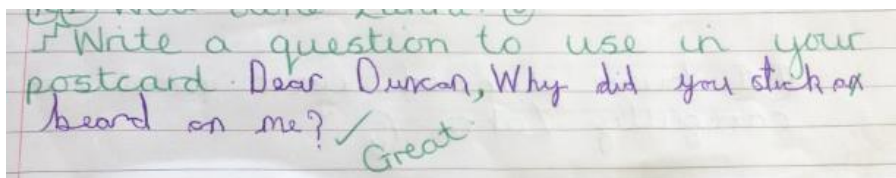 Write a question to use in your
postcard. Dear Duncan, Why did you stick a
beard on me? ✓ Great